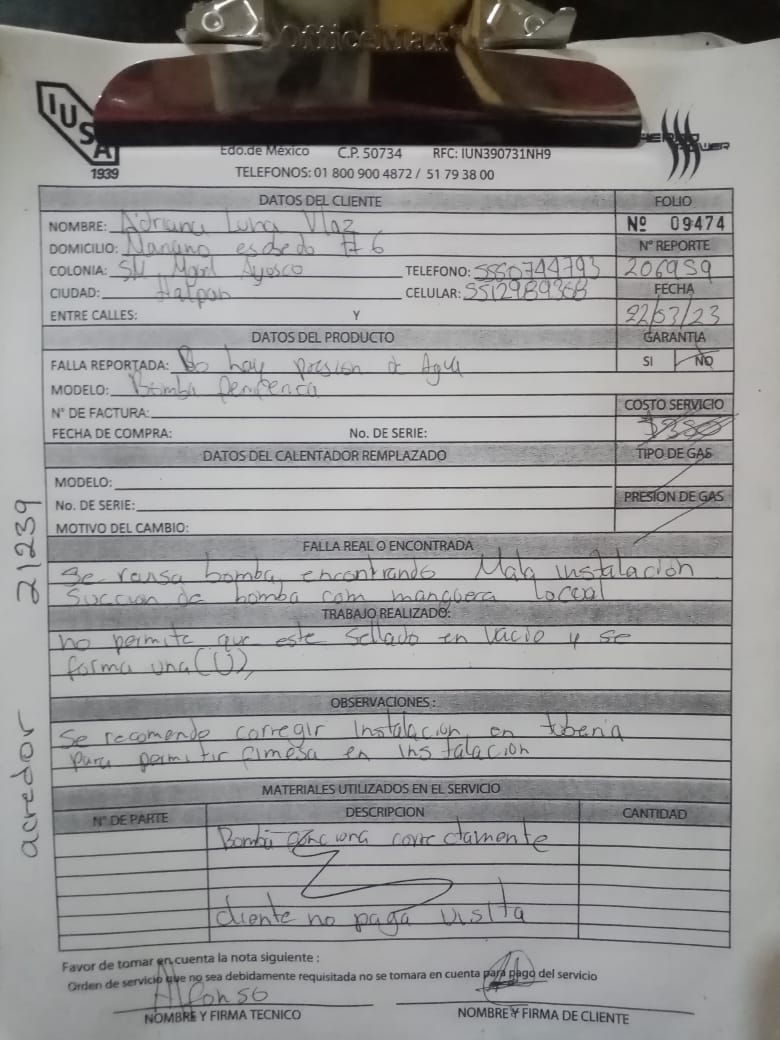 OfficeMax
IUSA
1939
Edo.de México C.P. 50734 RFC: IUN390731NH9
TELEFONOS: 01 800 900 4872 / 51 79 38 00
DATOS DEL CLIENTE FOLIO
NOMBRE: Adriana Luna Nº 09474
DOMICILIO: # 6 Nº REPORTE
COLONIA: Ajosco TELEFONO: 5550744793 206959
CIUDAD: CELULAR: 5512989368 FECHA
ENTRE CALLES: Y 22/03/23
DATOS DEL PRODUCTO GARANTIA
FALLA REPORTADA: No hay presion de Agua SI NO
MODELO: Bomba
N° DE FACTURA: COSTO SERVICIO
FECHA DE COMPRA: No. DE SERIE: $380
DATOS DEL CALENTADOR REMPLAZADO TIPO DE GAS
MODELO:
No. DE SERIE: PRESION DE GAS
MOTIVO DEL CAMBIO:
FALLA REAL O ENCONTRADA
Se revisa bomba, encontrando Mala instalación
Succion de bomba com manguera
TRABAJO REALIZADO:
no permite que este sellado en vacio y se
forma una (U),
OBSERVACIONES :
Se recomendo corregir instalación, en tuberia
para permitir en instalación
MATERIALES UTILIZADOS EN EL SERVICIO
N° DE PARTE DESCRIPCION CANTIDAD
Bomba correctamente
cliente no paga visita
Favor de tomar en cuenta la nota siguiente :
Orden de servicio que no sea debidamente requisitada no se tomara en cuenta para pago del servicio
Alfonso
NOMBRE Y FIRMA TECNICO NOMBRE Y FIRMA DE CLIENTE
acredor 21239